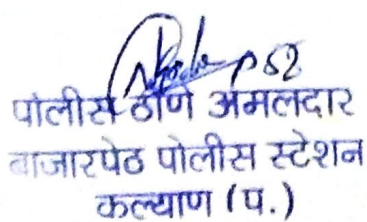 पोलीस ठाणे अमलदार
बाजारपेठ पोलीस स्टेशन
कल्याण (प.)